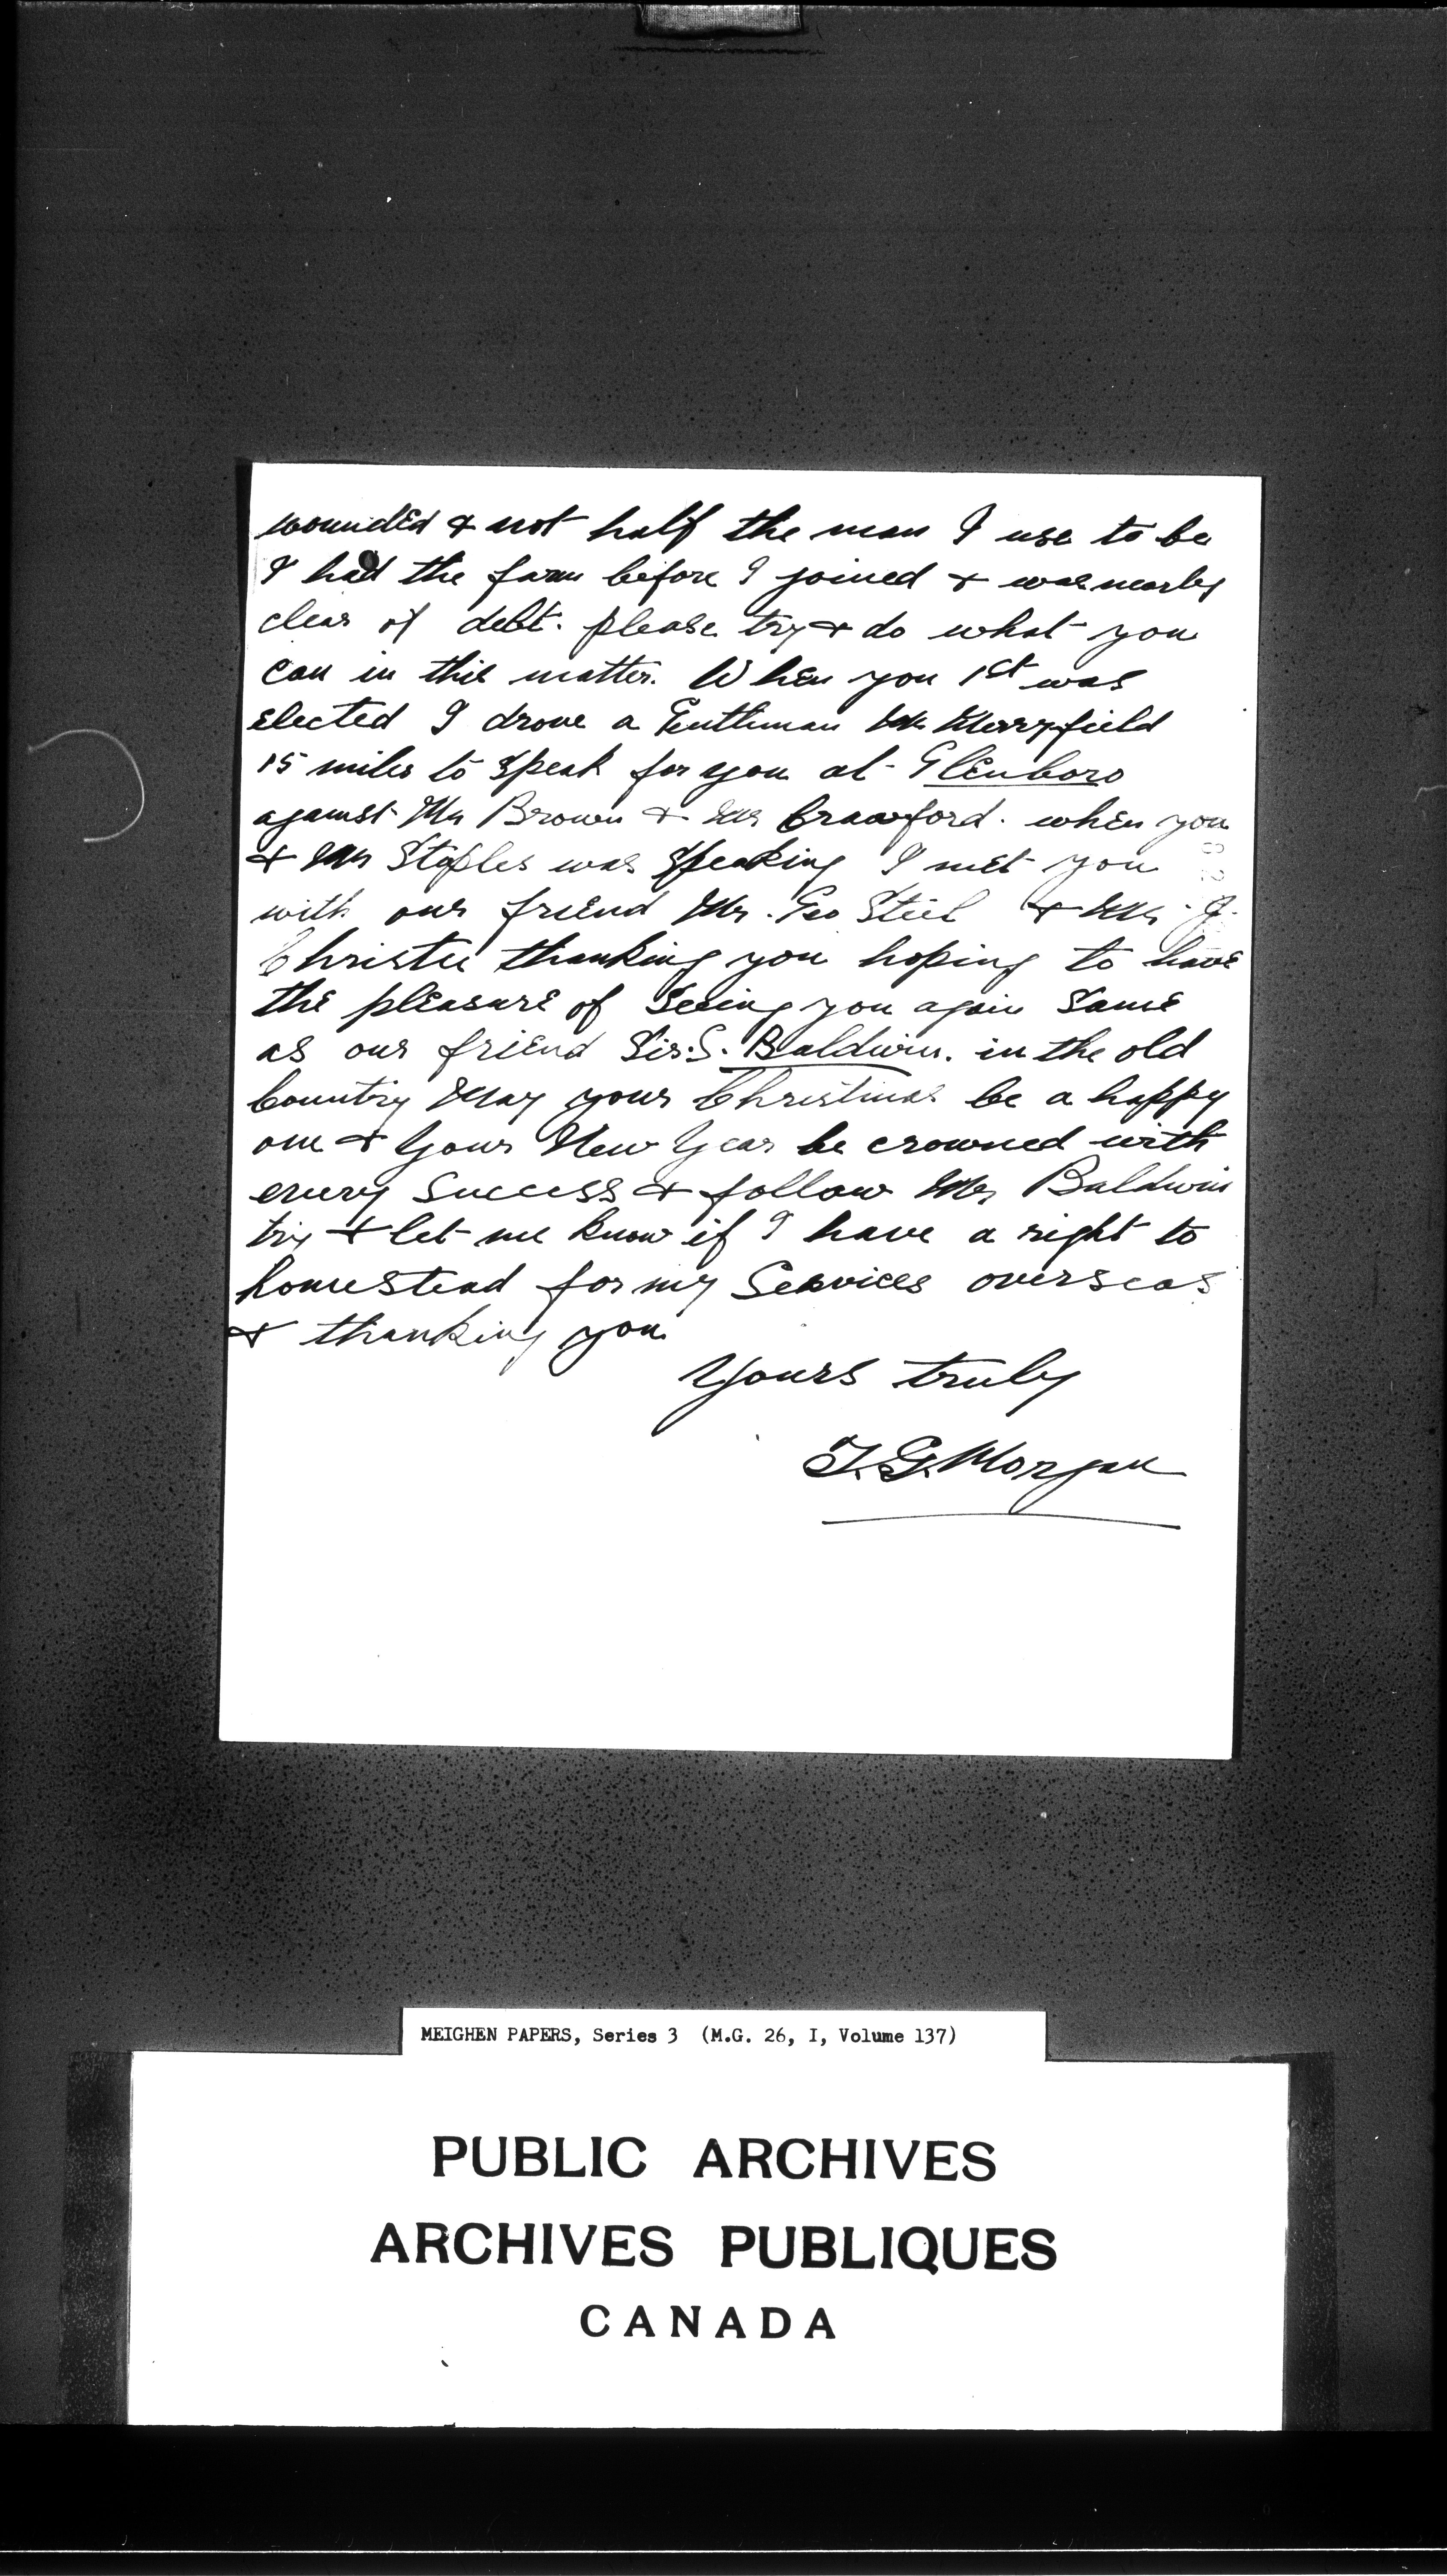 wounded & not half the man I use to be
I had the farm before I joined & was nearly
clear of debt. please try & do what you
can in this matter. When you 1st was
elected I drove a Gentleman Mr Merryfield
15 miles to speak for you at Glenboro
against Mr Brown & Mr Crawford. when you
& Mr Staples was speaking I met you
with our friend Mr. Geo Steel & Mr. J.
Christie thanking you hoping to have
the pleasure of seeing you again same
as our friend Sir. S. Baldwin. in the old
Country May your Christmas be a happy
one & your New Year be crowned with
every success & follow Mr Baldwin
try & let me know if I have a right to
homestead for my Services overseas
& thanking you
Yours truly
T. G. Morgan
MEIGHEN PAPERS, Series 3 (M.G. 26, I, Volume 137)
PUBLIC ARCHIVES
ARCHIVES PUBLIQUES
CANADA